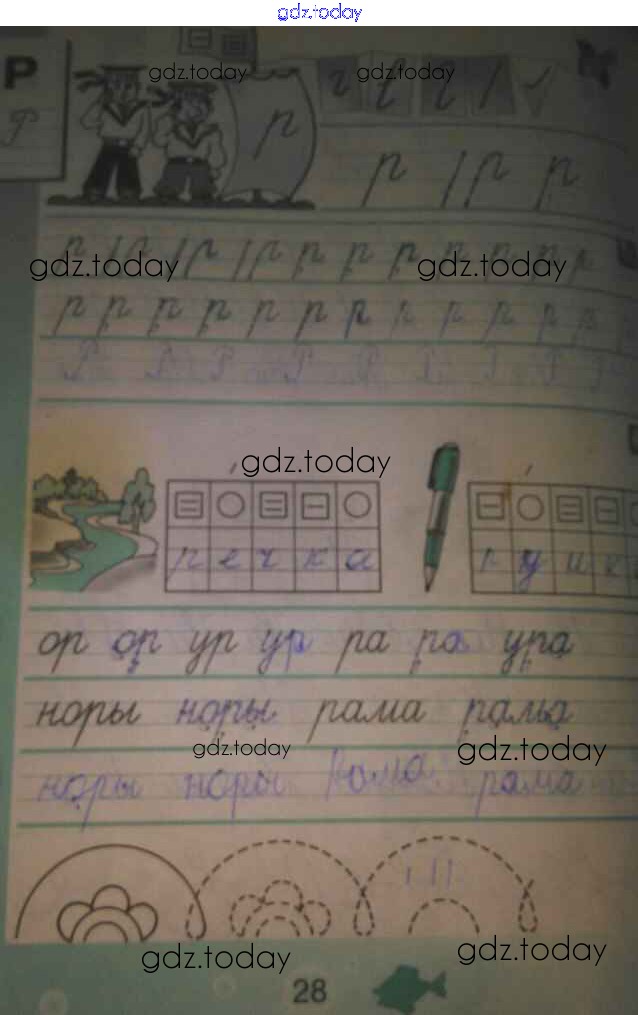 gdz.today
Р
р
gdz.today gdz.today
р
р р р
gdz.today gdz.today
р р р р р р р р р
р р р р р р р р р р р р
gdz.today
р е ч к а
ор ор ур ур ра ра ура
норы норы рама рама
gdz.today gdz.today
норы норы рама рама
gdz.today gdz.today
28